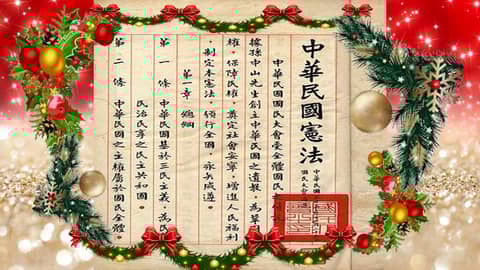 中華民國憲法
中華民國
國民大會
中華民國國民大會受全體國民
據孫中山先生創立中華民國之遺教，為
權，保障民權，奠定社會安寧，增進人民福利
，制定本憲法，頒行全國，永矢咸遵。
第一章 總綱
第一條 中華民國基於三民主義，為民
民治民享之民主共和國。
第二條 中華民國之主權屬於國民全體。